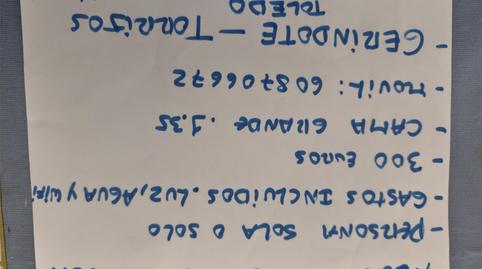 - PERSONA SOLA O SOLO
- GASTOS INCLUIDOS. LUZ, AGUA Y WIFI
- 300 EUROS
- CAMA GRANDE. 1.35
- MOVIL: 608706672
- GERINDOTE - TORRIJOS
TOLEDO